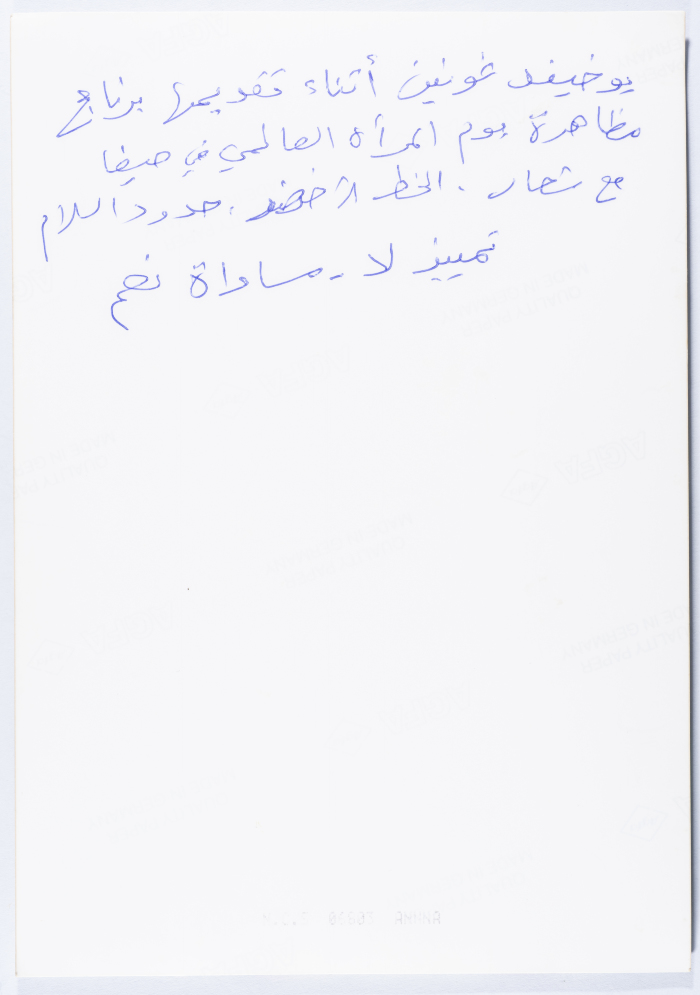 يوخيفد غونين أثناء تقديمها برنامج
مظاهرة يوم المرأة العالمي في حيفا
مع شعار . الخط الأخضر . حدود السلام
تمييز لا - مساواة نعم